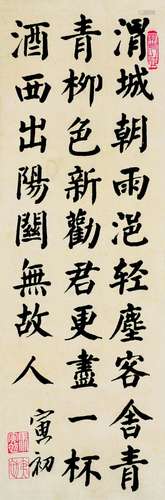 渭城朝雨浥轻塵客舍青
青柳色新勸君更盡一杯
酒西出陽關無故人
寅初